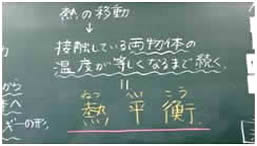 熱の移動
↓
接触している両物体の
温度が等しくなるまで続く。
||
ねつ へい こう
熱平衡
から
へ
ギーの形、